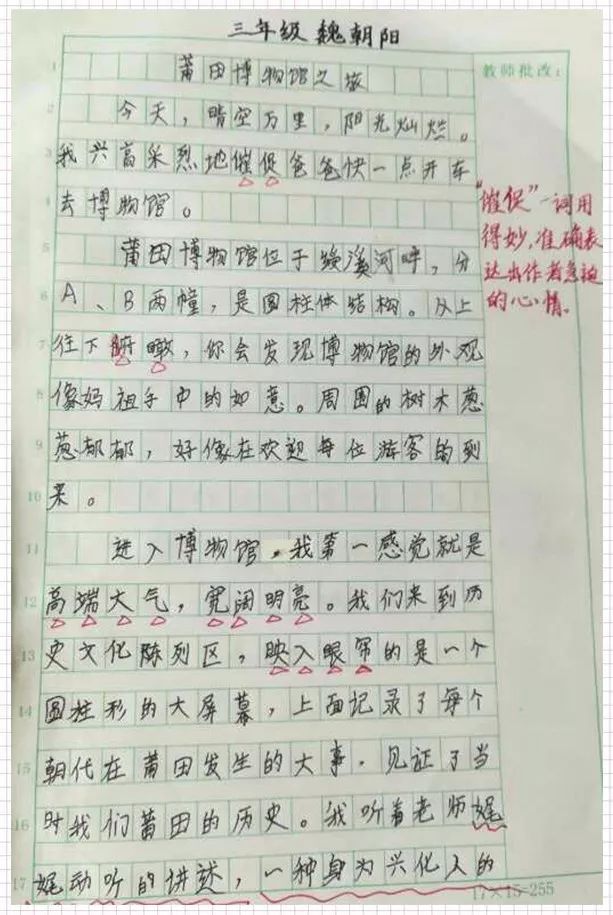 三年级 魏朝阳
教师批改：
莆田博物馆之旅
今天，晴空万里，阳光灿烂。
我兴高采烈地催促爸爸快一点开车
去博物馆。
"催促"一词用
得妙，准确表
达出作者急迫
的心情。
莆田博物馆位于绶溪河畔，分
A、B两幢，是圆柱体结构。从上
往下俯瞰，你会发现博物馆的外观
像妈祖手中的如意。周围的树木葱
葱郁郁，好像在欢迎每位游客的到
来。
进入博物馆，我第一感觉就是
高端大气，宽阔明亮。我们来到历
史文化陈列区，映入眼帘的是一个
圆柱形的大屏幕，上面记录了每个
朝代在莆田发生的大事，见证了当
时我们莆田的历史。我听着老师娓
娓动听的讲述，一种身为兴化人的
1
2
3
5
6
7
8
9
10
11
12
13
14
15
16
17
17×15=255